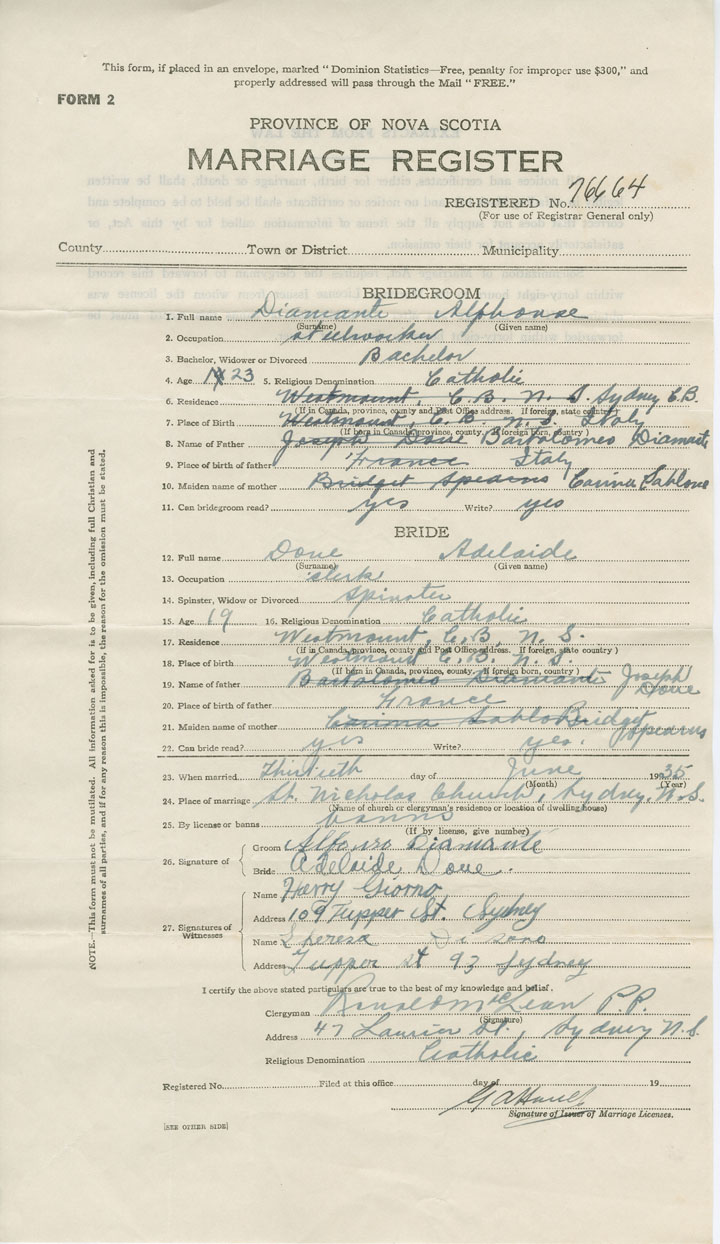 This form, if placed in an envelope, marked "Dominion Statistics—Free, penalty for improper use $300," and
properly addressed will pass through the Mail "FREE."
FORM 2
PROVINCE OF NOVA SCOTIA
MARRIAGE REGISTER
REGISTERED No. 76664
(For use of Registrar General only)
County Town or District Municipality
BRIDEGROOM
1. Full name Diamante Alphonse
(Surname) (Given name)
2. Occupation steelworker
3. Bachelor, Widower or Divorced Bachelor
4. Age 23 5. Religious Denomination Catholic
6. Residence Westmount, C.B. N.S. Sydney C.B.
(If in Canada, province, county and Post Office address. If foreign, state country)
7. Place of Birth Westmount, C.B. N.S. Italy
(If born in Canada, province, county. If foreign born, country)
8. Name of Father Joseph Dove Bartolomeo Diamante
9. Place of birth of father France Italy
10. Maiden name of mother Bridget Spearns Carina Sablone
11. Can bridegroom read? yes Write? yes
BRIDE
12. Full name Dove Adelaide
(Surname) (Given name)
13. Occupation clerk
14. Spinster, Widow or Divorced Spinster
15. Age 19 16. Religious Denomination Catholic
17. Residence Westmount, C.B, N.S.
(if in Canada, province, county and Post Office address. If foreign, state country)
18. Place of birth Westmount C.B. N.S.
(If born in Canada, province, county. If foreign born, country)
19. Name of father Bartolomeo Diamante Joseph Dove
20. Place of birth of father France
21. Maiden name of mother Carina Sablo Bridget Spearns
22. Can bride read? yes Write? yes.
23. When married Thirtieth day of June 1935
(Month) (Year)
24. Place of marriage St. Nicholas Church, Sydney, N.S.
(Name of church or clergyman's residence or location of dwelling house)
25. By license or banns banns
(If by license, give number)
26. Signature of
Groom Alfonso Diamante
Bride Adelaide Dove.
27. Signatures of Witnesses
Name Harry Giorno
Address 109 Tupper St. Sydney
Name Theresa Di
Address Tupper st 93 Sydney
I certify the above stated particulars are true to the best of my knowledge and belief.
Clergyman Ronald McLean P.P.
(Signature)
Address 47 Laurier St., Sydney N.S.
Religious Denomination Catholic
Registered No. Filed at this office day of 19
Signature of Issuer of Marriage Licenses.
[SEE OTHER SIDE]
NOTE.—This form must not be mutilated. All information asked for is to be given, including full Christian and
surnames of all parties, and if for any reason this is impossible, the reason for the omission must be stated.